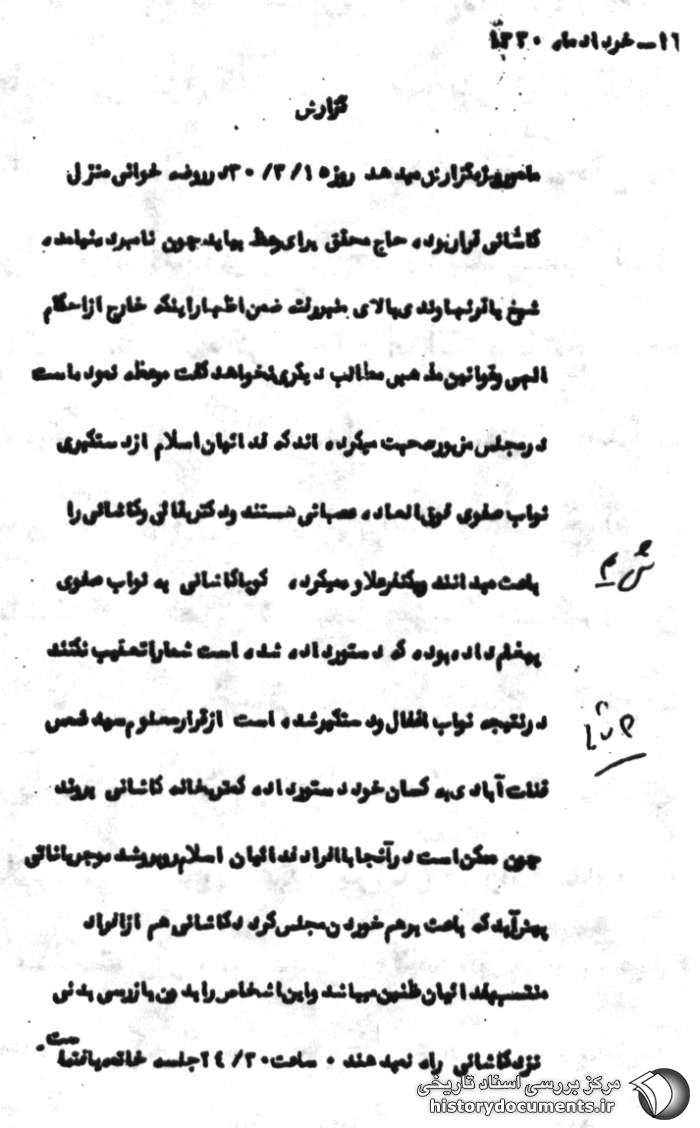 ۱۶ــ خردادماه ۱۳۳۰
گزارش
مامورویژه گزارش میدهد روز ۱۵/۳/۳۰ در روضه خوانی منزل
کاشانی قرار بوده حاج محقق برای وعظ بیاید چون نامبرده نیامده
شیخ باقر نهاوندی بالای منبر رفت ضمن اظهار اینکه خارج از احکام
الهی و قوانین مذهبی مطالب دیگری نخواهد گفت موعظه نموده است
در مجلس مزبور صحبت میکرده اند که فدائیان اسلام از دستگیری
نواب صفوی فوق العاده عصبانی هستند و دکتر بقائی و کاشانی را
باعث میدانند و یکنفر علاوه میکرده گویا کاشانی به نواب صفوی
پیغام داده بوده که دستور داده شده است شما را تعقیب نکنند
در نتیجه نواب اغفال و دستگیر شده است از قرار معلوم سید شمس
قنات آبادی به کسان خود دستور داده کمتر بخانه کاشانی بروند
چون ممکن است در آنجا با افراد فدائیان اسلام روبرو شده و جریاناتی
پیش آید که باعث برهم خوردن مجلس گردد کاشانی هم از افراد
منتسب بفدائیان ظنین میباشد و این اشخاص را بدون بازرسی بدنی
نزد کاشانی راه نمیدهند ۰ ساعت ۲۰/۲۴ جلسه خاتمه یافته است.
مرکز بررسی اسناد تاریخی
historydocuments.ir